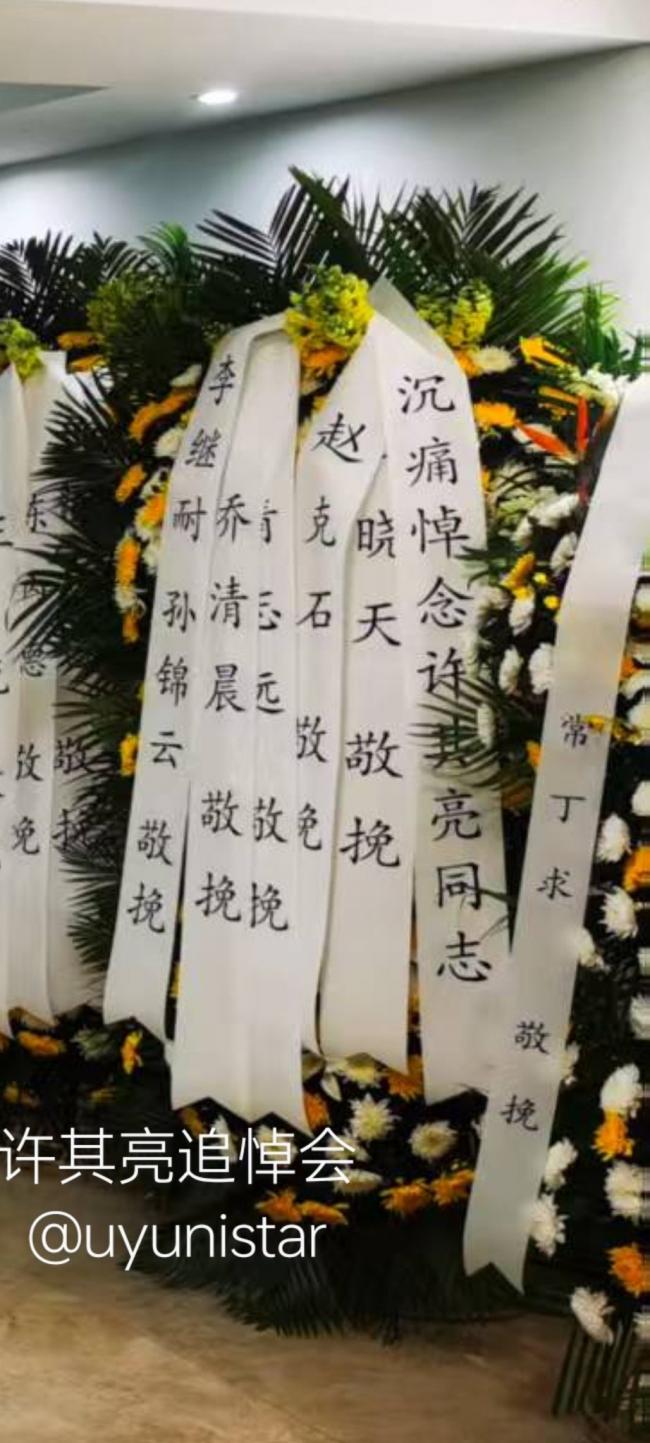 沉痛悼念许其亮同志
赵克石 敬挽
晓天 敬挽
志远 敬挽
乔清晨 敬挽
李继耐 孙锦云 敬挽
常丁求 敬挽
敬挽
敬挽
许其亮追悼会
@uyunistar